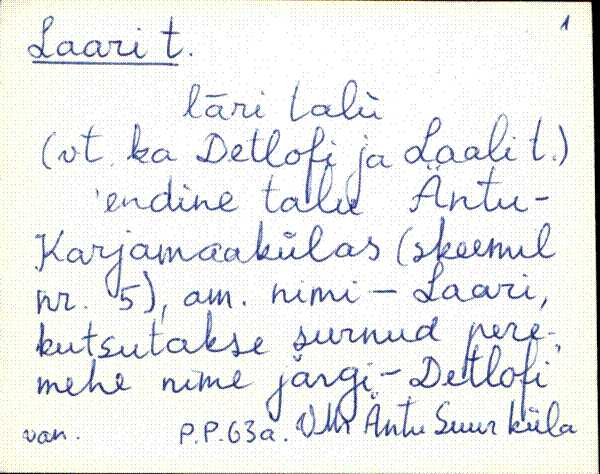 1
Laari t.
lāri talu
(vt. ka Detlofi ja Laali t.)
'endine talu Äntu-
Karjamaakülas (skeemil
nr. 5), am. nimi – Laari,
kutsutakse surnud pere-
mehe nime järgi – Detlofi'
van. P.P. 63a. VMr Äntu Suurküla